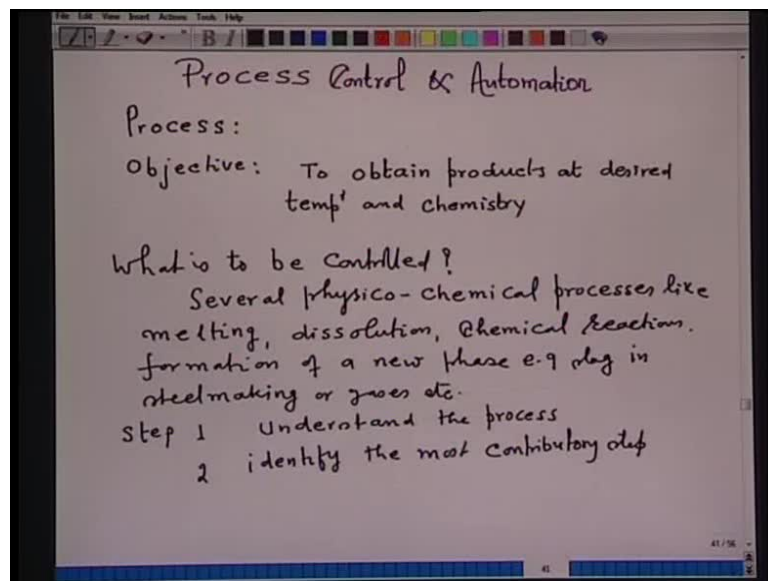 File Edit View Insert Actions Tools Help
B I
Process Control & Automation
Process:
Objective: To obtain products at desired
tempr and chemistry
What is to be controlled?
Several physico-chemical processes like
melting, dissolution, chemical reaction.
formation of a new phase e.g slag in
steelmaking or gases etc.
Step 1 Understand the process
2 identify the most contributory step
41/56
41